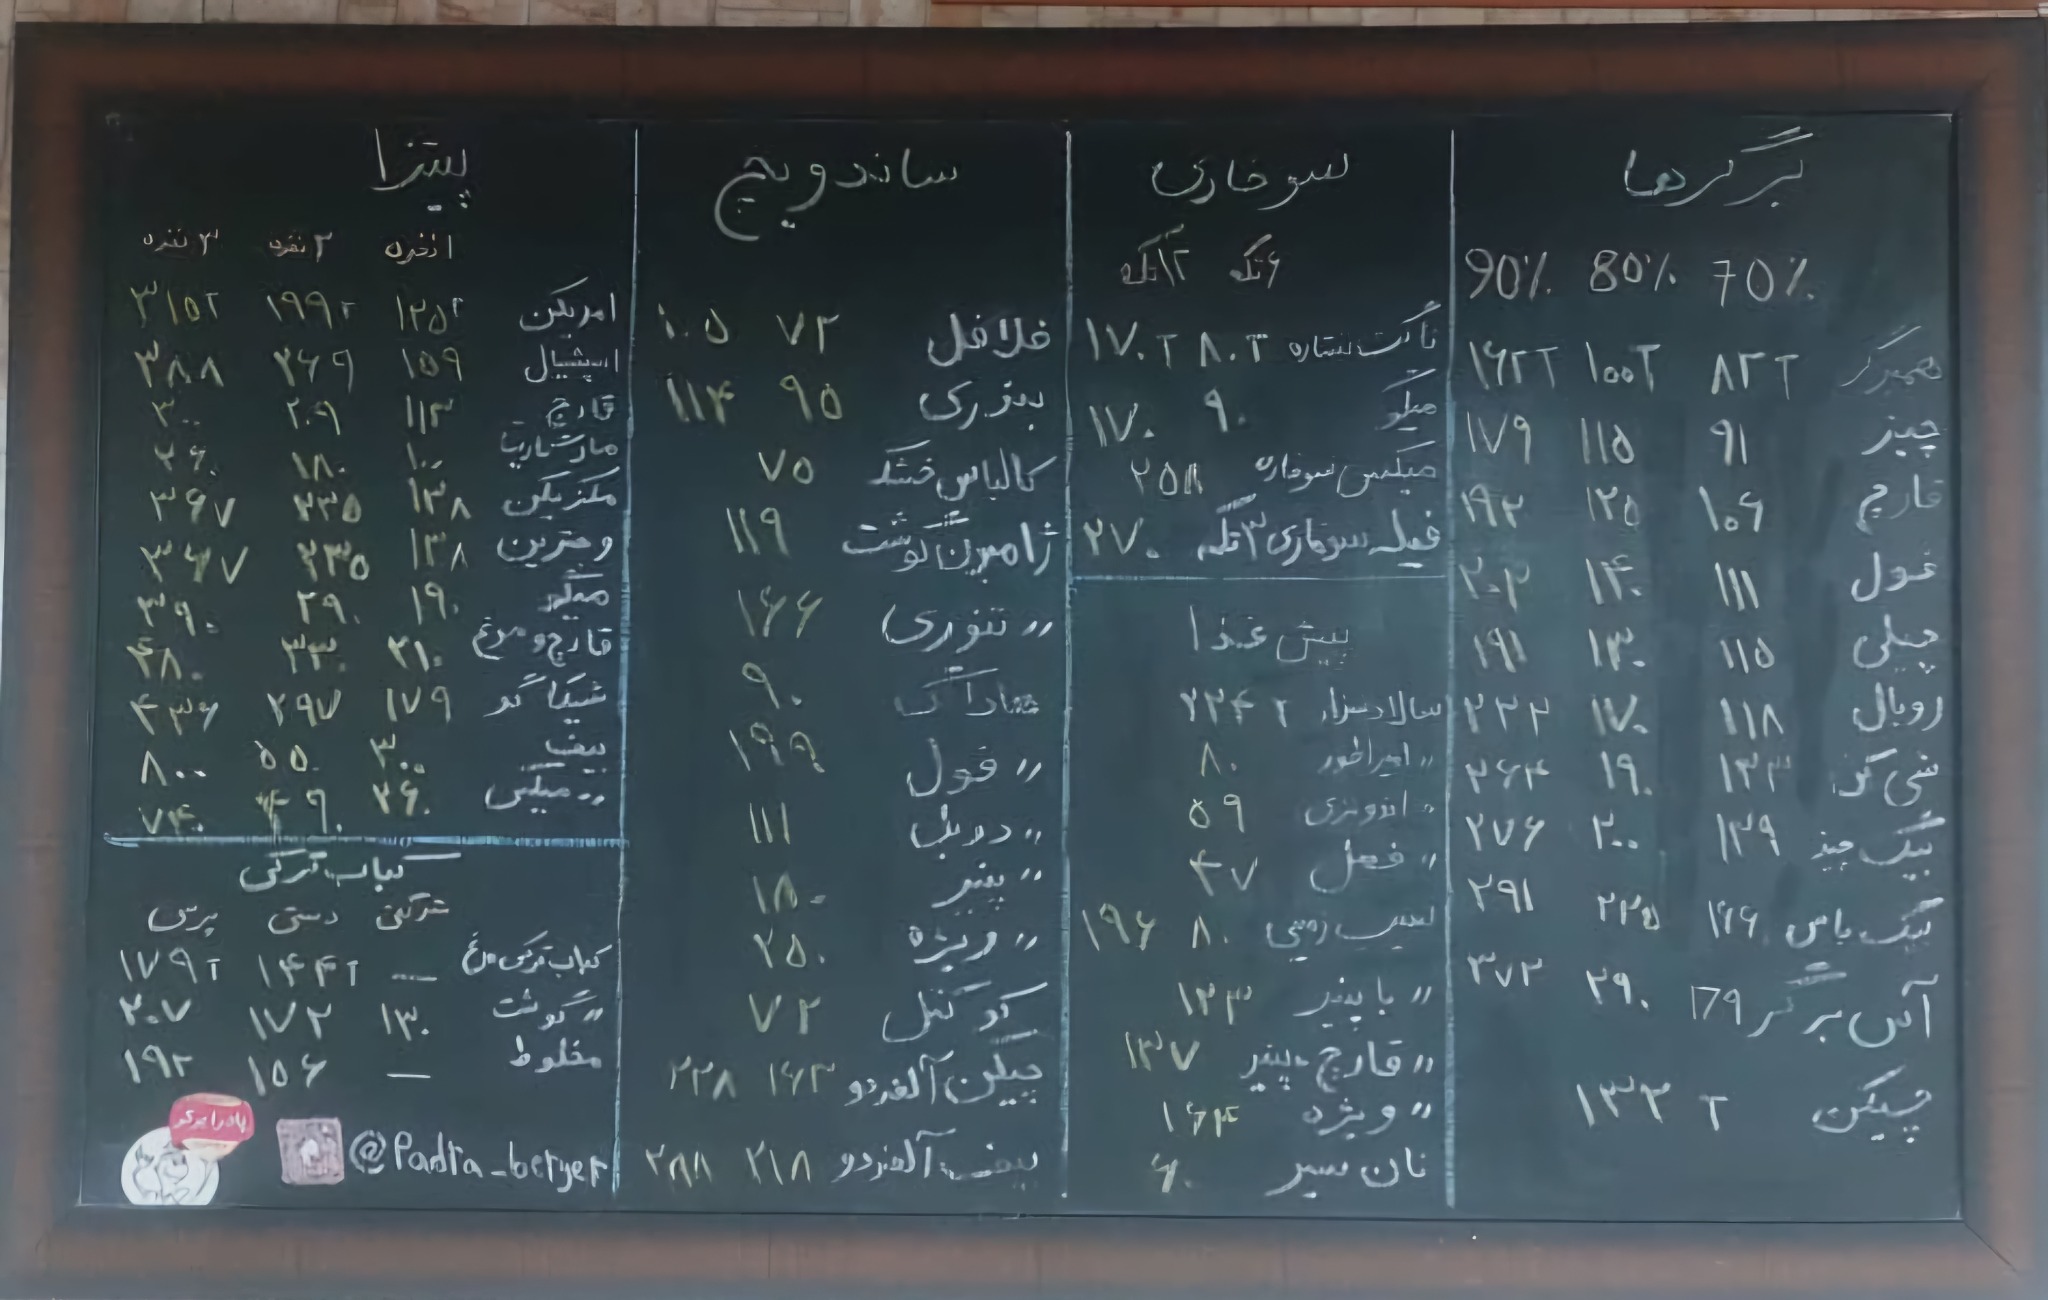 برگرها
70% 80% 90%
همبرگر ۸۲T ۱۰۰T ۱۶۲T
چیز ۹۱ ۱۱۵ ۱۷۹
قارچ ۱۰۶ ۱۲۵ ۱۹۲
غول ۱۱۱ ۱۴۰ ۲۰۳
چیلی ۱۱۵ ۱۳۰ ۱۹۱
رویال ۱۱۸ ۱۷۰ ۲۳۲
شی کن ۱۳۳ ۱۹۰ ۲۶۴
بیگ چیز ۱۳۹ ۲۰۰ ۲۷۶
بیگ باس ۱۶۶ ۲۲۵ ۲۹۱
آس برگر 179 ۲۹۰ ۳۷۲
چیکن ۱۳۲ T
سوخاری
۶تکه ۱۲تکه
ناگت ستاره ۸۰T ۱۷۰T
میگو ۹۰ ۱۷۰
میکس سوخاری ۲۵۸
فیله سوخاری ۳تکه ۲۷۰
پیش غذا
سالاد سزار ۲۳۴T
〃 امپراطور ۸۰
〃 اندونزی ۵۹
〃 فصل ۴۷
سیب زمینی ۸۰ ۱۹۶
〃 با پنیر ۱۳۳
〃 قارچ پنیر ۱۳۷
〃 ویژه ۱۶۴
نان سیر ۶۰
ساندویچ
فلافل ۷۲ ۱۰۵
بندری ۹۵ ۱۱۴
کالباس خشک ۷۵
ژامبون گوشت ۱۱۹
〃 تنوری ۱۶۶
هات داگ ۹۰
〃 غول ۱۹۹
〃 دوبل ۱۱۱
〃 پنیر ۱۸۰
〃 ویژه ۲۵۰
کوکتل ۷۲
چیکن آلفردو ۱۶۳ ۲۲۸
بیف آلفردو ۲۱۸ ۲۸۸
پیتزا
۱نفره ۲نفره ۳نفره
امریکن ۱۲۵T ۱۹۹T ۳۱۵T
اسپشیال ۱۵۹ ۲۶۹ ۳۸۸
قارچ ۱۱۳ ۲۰۹ ۳۰۰
مارگاریتا ۱۰۰ ۱۸۰ ۲۶۰
مکزیکن ۱۳۸ ۲۳۵ ۳۶۷
وجترین ۱۳۸ ۲۳۵ ۳۶۷
میگو ۱۹۰ ۲۹۰ ۳۹۰
قارچ و مرغ ۲۱۰ ۳۳۰ ۴۸۰
شیکاگو ۱۷۹ ۲۹۷ ۴۳۶
بیف ۳۰۰ ۵۵۰ ۸۰۰
〃 میکس ۲۶۰ ۴۹۰ ۷۴۰
کباب ترکی
دستی پرس
کباب ترکی مرغ — ۱۴۴T ۱۷۹T
〃 گوشت ۱۳۰ ۱۷۲ ۲۰۷
مخلوط — ۱۵۶ ۱۹۲
پادرا برگر
@Padra_berger